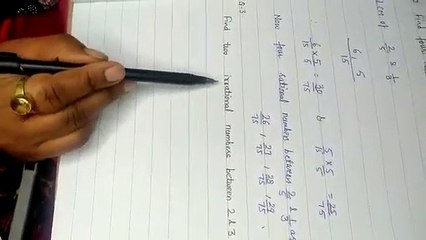 Find four
of 2/5 & 1/3
6, 5
15
6/15 × 5/5 = 30/75 & 5/15 × 5/5 = 25/75
Now four rational number between 2/5 & 1/3 as
26/75, 27/75, 28/75, 29/75.
Q.3
Find two irrational numbers between 2 & 3.